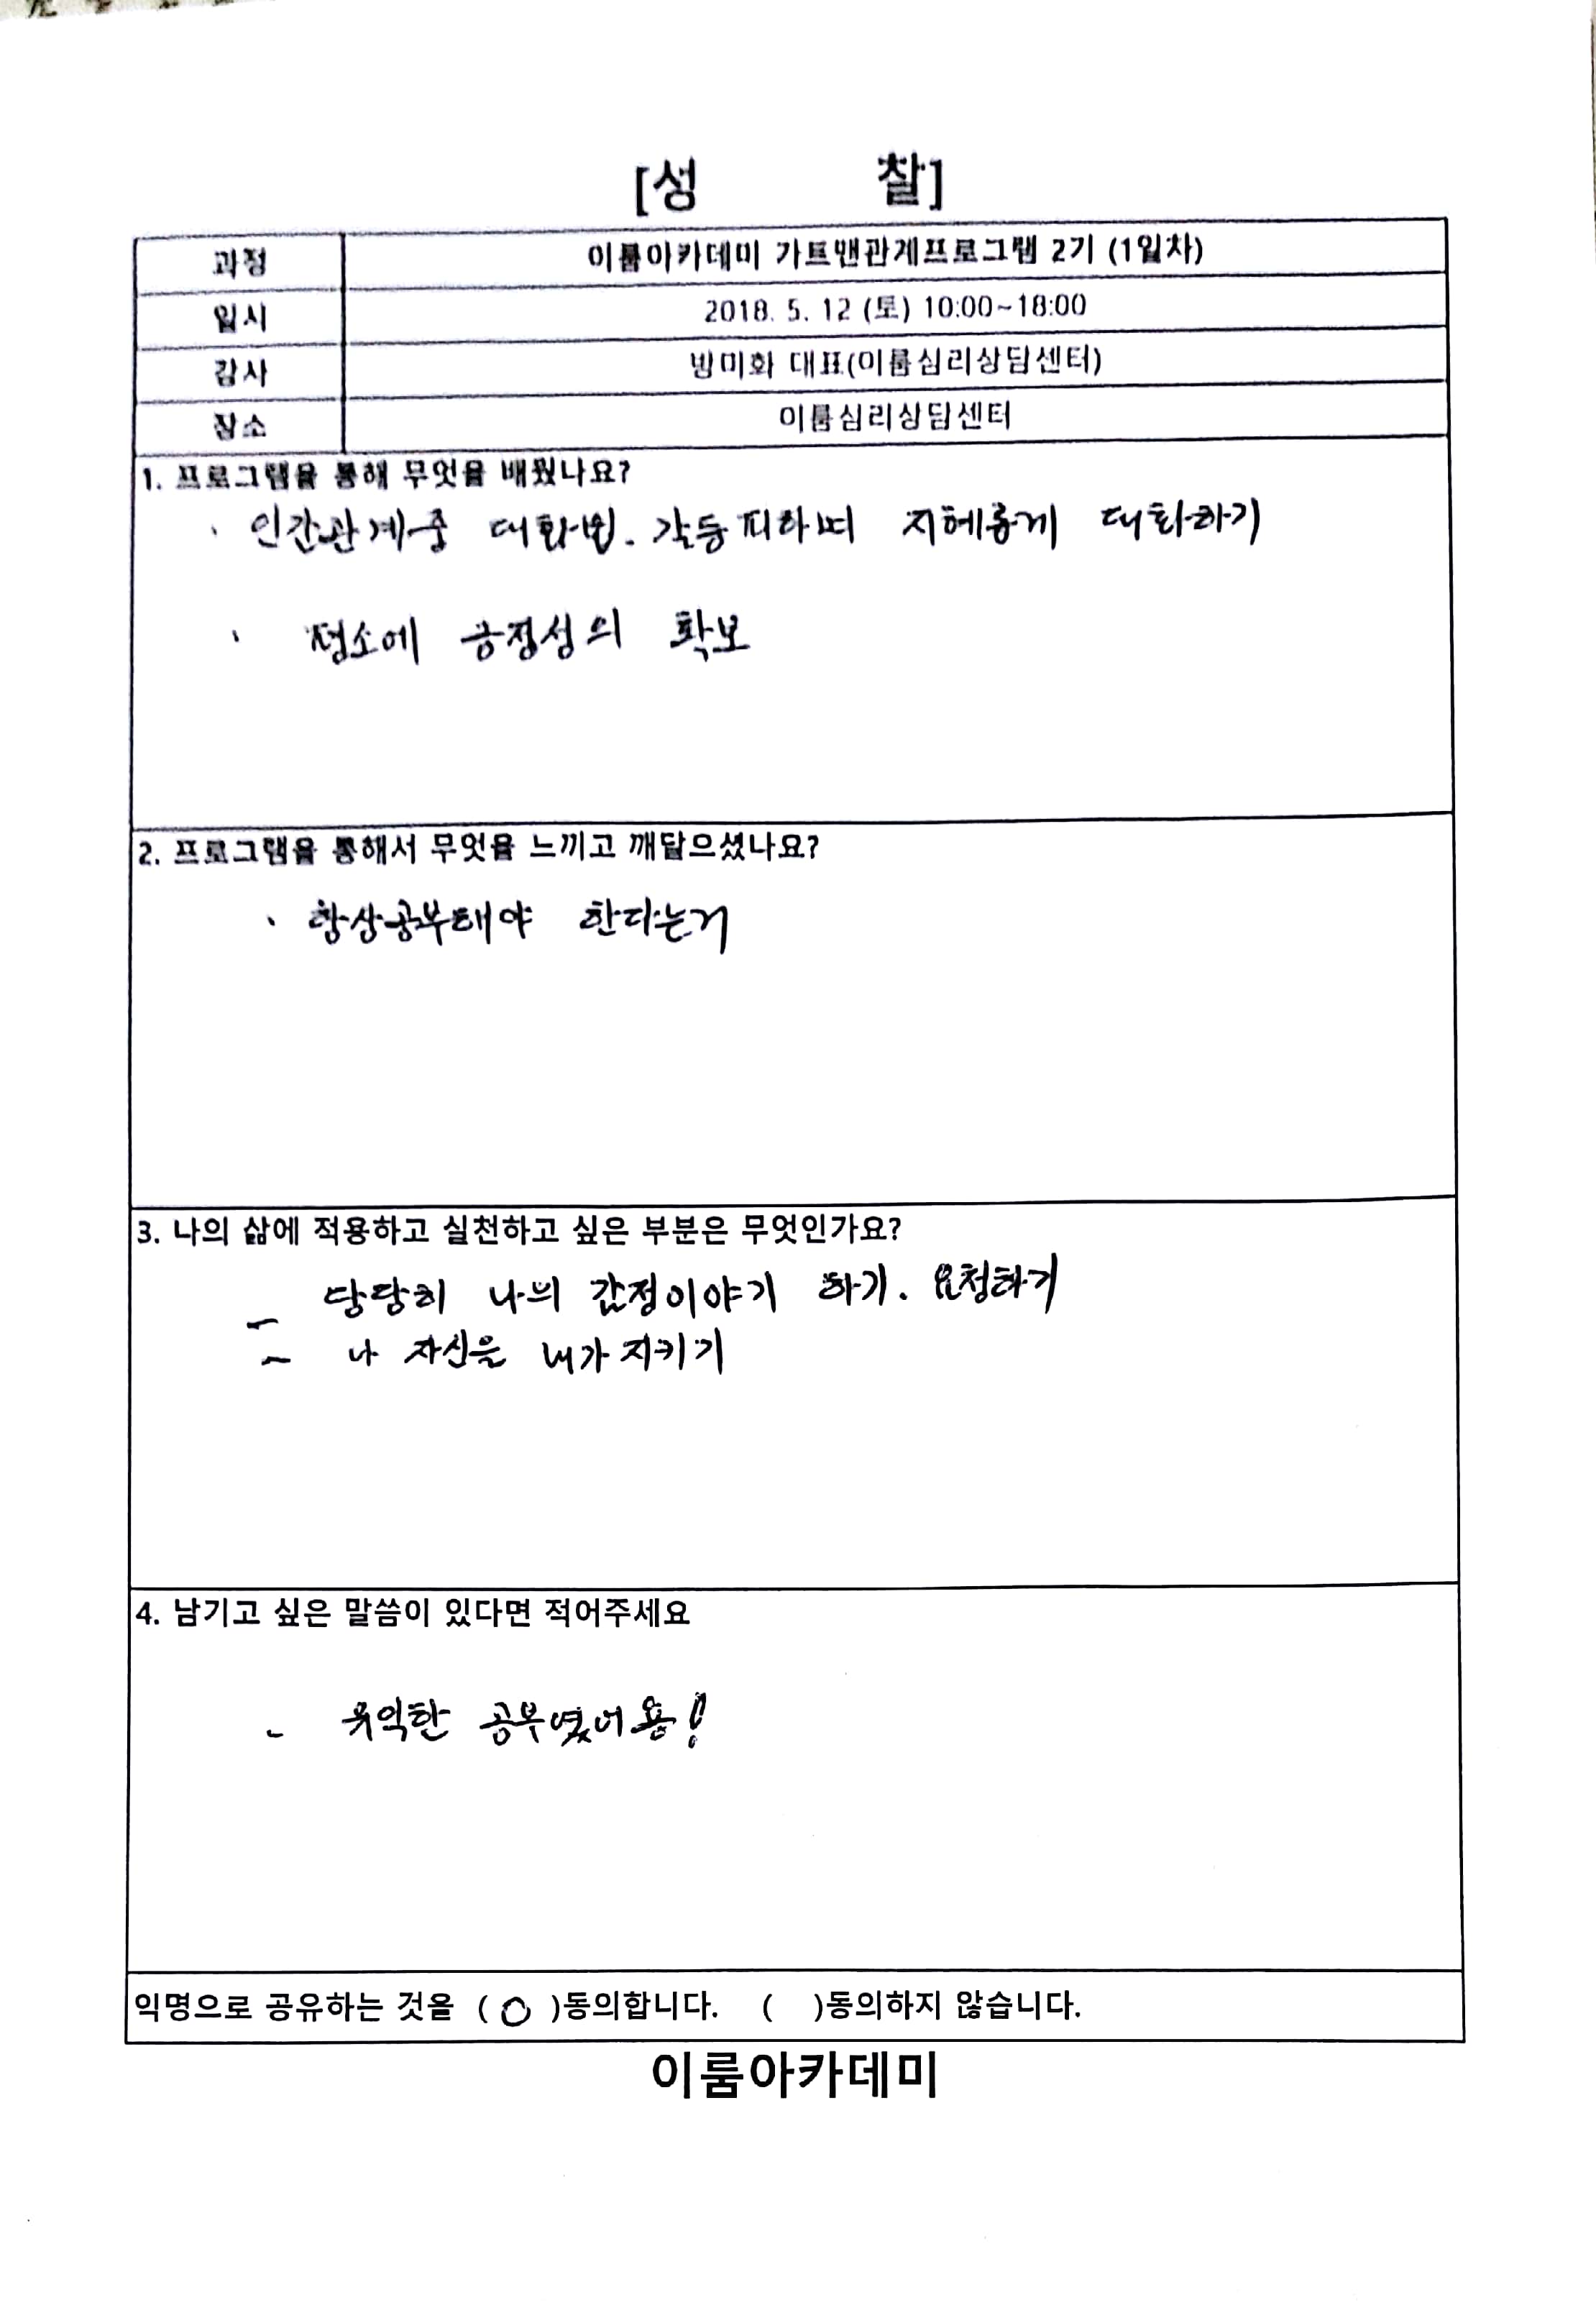 [성 찰]
과정 이룸아카데미 가트맨관계프로그램 2기 (1일차)
일시 2018. 5. 12 (토) 10:00~18:00
강사 방미화 대표(이룸심리상담센터)
장소 이룸심리상담센터
1. 프로그램을 통해 무엇을 배웠나요?
· 인간관계중 대화법. 갈등피하며 지혜롭게 대화하기
· 평소에 긍정성의 확보
2. 프로그램을 통해서 무엇을 느끼고 깨달으셨나요?
· 항상공부해야 한다는거
3. 나의 삶에 적용하고 실천하고 싶은 부분은 무엇인가요?
- 당당히 나의 감정이야기 하기. 요청하기
- 나 자신을 내가 지키기
4. 남기고 싶은 말씀이 있다면 적어주세요
- 유익한 공부였어용!
익명으로 공유하는 것을 ( O )동의합니다. ( )동의하지 않습니다.
이룸아카데미